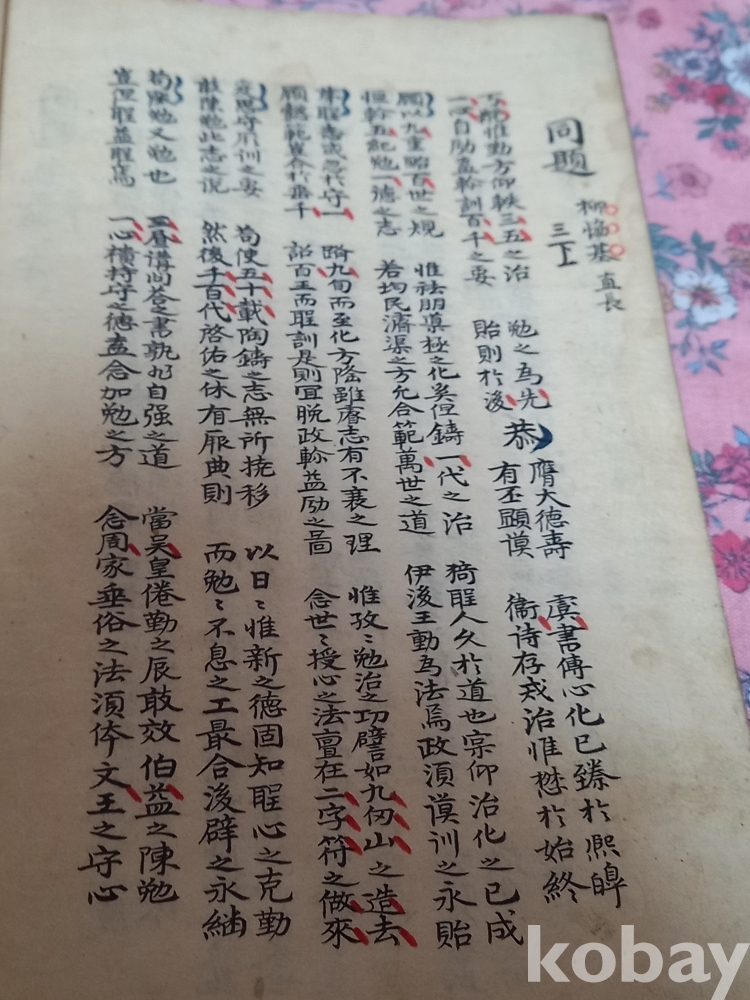 同題
柳 基 直長
三下
惟勤方仰軼三五之治 勉之為先 恭 膺大德壽 虞書傳心化已臻於熙皞
一心自勖盍軫訓百千之要 貽則於後 有丕顯謨 衛詩存戒治惟懋於始終
顧以九重貽百世之規 惟祛朋 極之化奚但鑄一代之治 猗聖人久於道也宗仰治化之已成
恒軫五紀勉一德之志 若均民濬渠之方允合範萬世之道 伊後王動為法焉政須謨訓之永貽
聖 或忽於守一 際九旬而至化方隆雖睿志有不衰之理 惟孜〻勉治之功譬如九仞山之造去
顧懿範豈合於垂千 詔百王而聖訓是則宜脫政軫益勵之啚 念世〻授心之法亶在二字符之做來
爰思守用訓之要 苟使五十載陶鑄之志無所撓移 以日〻惟新之德固知聖心之克勤
敢陳勉此志之說 然後千百代啓佑之休有厥典則 而勉〻不息之工最合後辟之永緬
苟陳勉又勉也 三晝講問答之書孰如自强之道 當吴皇倦勤之辰敢效伯益之陳勉
豈但聖益聖焉 一心橫持守之德盍念加勉之方 念周家垂俗之法須体文王之守心
kobay